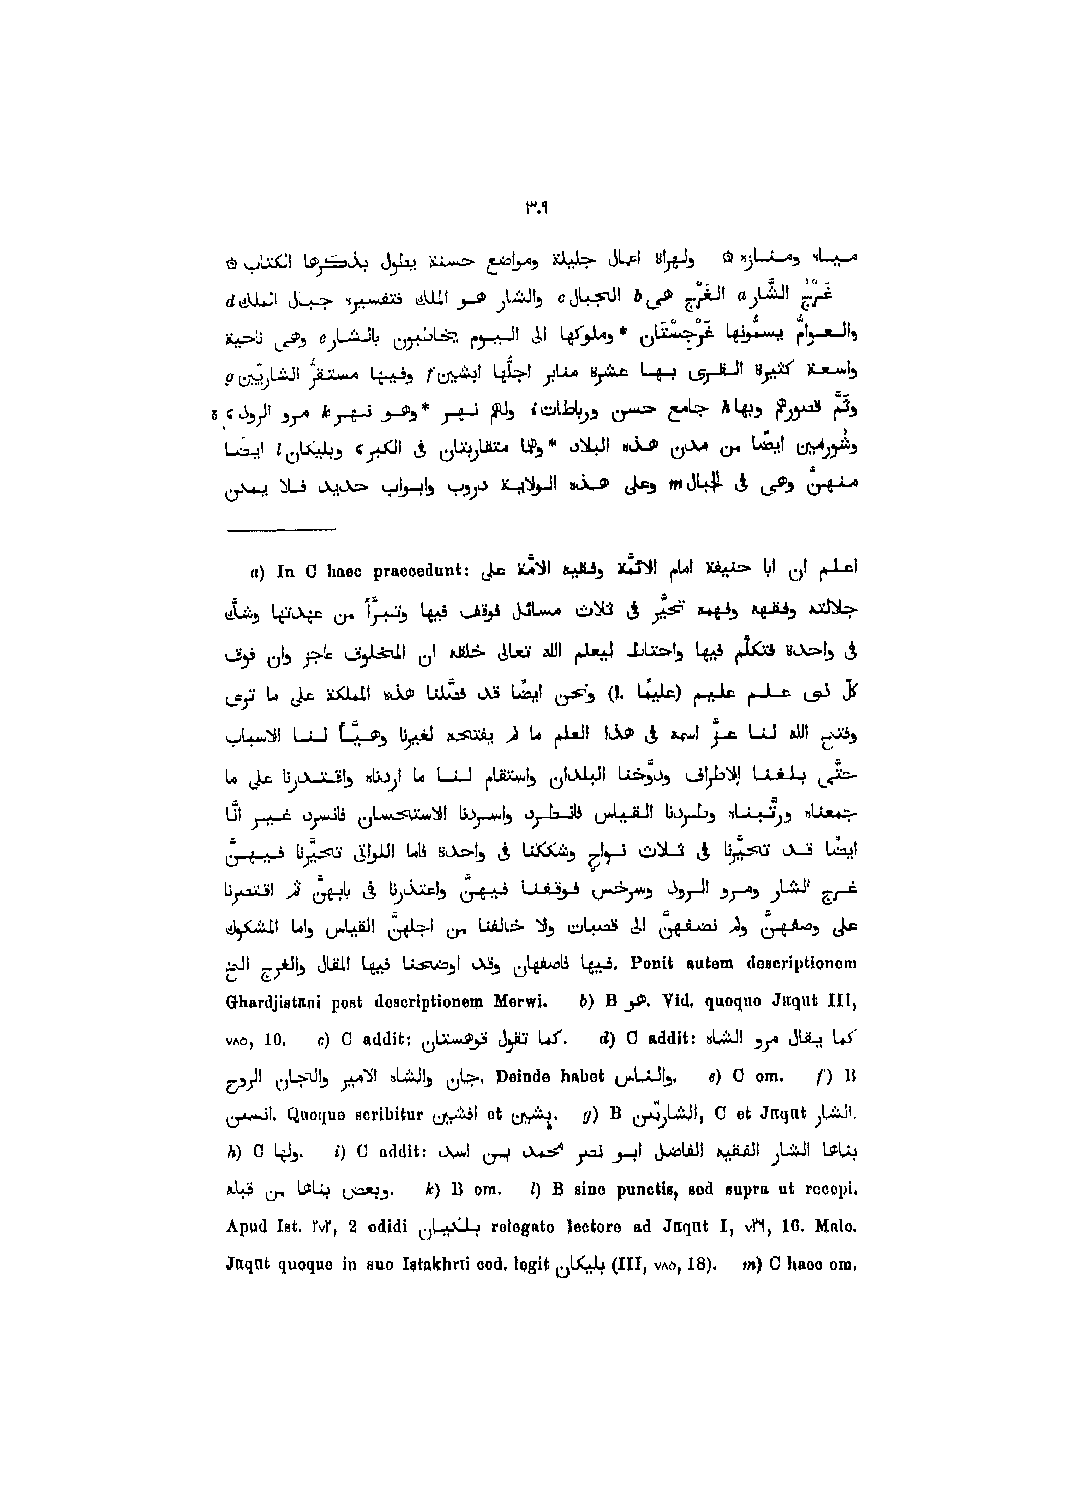 ٣٠٩
مياه ومنازه ۞ ولهراة اعمال جليلة ومواضع حسنة يطول بذكرها الكتاب ۞
غَرْجُ الشَّارِ a الغَرْجُ هى b الجبال c والشار هو الملك فتفسيره جبال الملك d
والعوامُّ يسمُّونها غَرْجِسْتَان *وملوكها الى اليوم يخاطبون بالشار e وهى ناحية
واسعة كثيرة القرى بها عشرة منابر اجلُّها ابشين f وفيها مستقرُّ الشاريّين g
وثَمَّ قصورهم وبها h جامع حسن ورباطات i ولهم نهر *وهو نهر k مرو الروذ c ،
وشُورمين ايضًا من مدن هذه البلاد *وهما متقاربتان فى الكبر c وبليكان l ايضًا
منهنَّ وهى فى الجبال m وعلى هذه الولاية دروب وابواب حديد فلا يمكن
a) In C haec praecedunt: اعلم ان ابا حنيفة امام الائمّة وفقيه الامّة على
جلالته وفقهه وفهمه تحيَّر فى ثلاث مسائل فوقف فيها وتبرَّأ من عهدتها وشكَّ
فى واحدة فتكلّم فيها واحتاط ليعلم الله تعالى خلقه ان المخلوق عاجز وان فوق
كلّ ذى علم عليم (l. عليمًا) ونحن ايضًا قد فصّلنا هذه المملكة على ما ترى
وفتح الله لنا عزّ اسمه فى هذا العلم ما لم يفتحه لغيرنا وهيَّأ لنا الاسباب
حتّى بلغنا الاطراف ودوَّخنا البلدان واستقام لنا ما اردناه واقتدرنا على ما
جمعناه ورتّبناه وطردنا القياس فانطرد واسردنا الاستحسان فانسرد غير انّا
ايضًا قد تحيَّرنا فى ثلاث نواحٍ وشككنا فى واحدة فاما اللواتى تحيَّرنا فيهنَّ
غرج الشار ومرو الروذ وسرخس فوقفنا فيهنَّ واعتذرنا فى بابهنَّ ثم اقتصرنا
على وصفهنَّ ولم نصفهنَّ الى قصبات ولا خالفنا من اجلهنَّ القياس واما المشكوك
فيها فاصفهان وقد اوضحنا فيها المقال والغرج الخ. Ponit autem descriptionem
Ghardjistâni post descriptionem Merwi. b) B هو. Vid. quoque Jâqût III,
٧٨٥, 10. c) C addit: كما تقول قوهستان. d) C addit: كما يقال مرو الشاه
جان والشاه الامير والجان الروح. Deinde habet والناس. e) C om. f) B
انسىى. Quoque scribitur افشين et بشين. g) B الشاريّين, C et Jâqût الشار.
h) C ولها. i) C addit: بناها الشار الفقيه الفاضل ابو نصر محمد بن اسد
وبعض بناها من قبله. k) B om. l) B sine punctis, sed supra ut recepi.
Apud Ist. ٢٧٢, 2 edidi بلكيان relegato lectore ad Jâqût I, ٧٢٩, 16. Male.
Jâqût quoque in suo Istakhrii cod. legit بليكان (III, ٧٨٥, 18). m) C haec om.